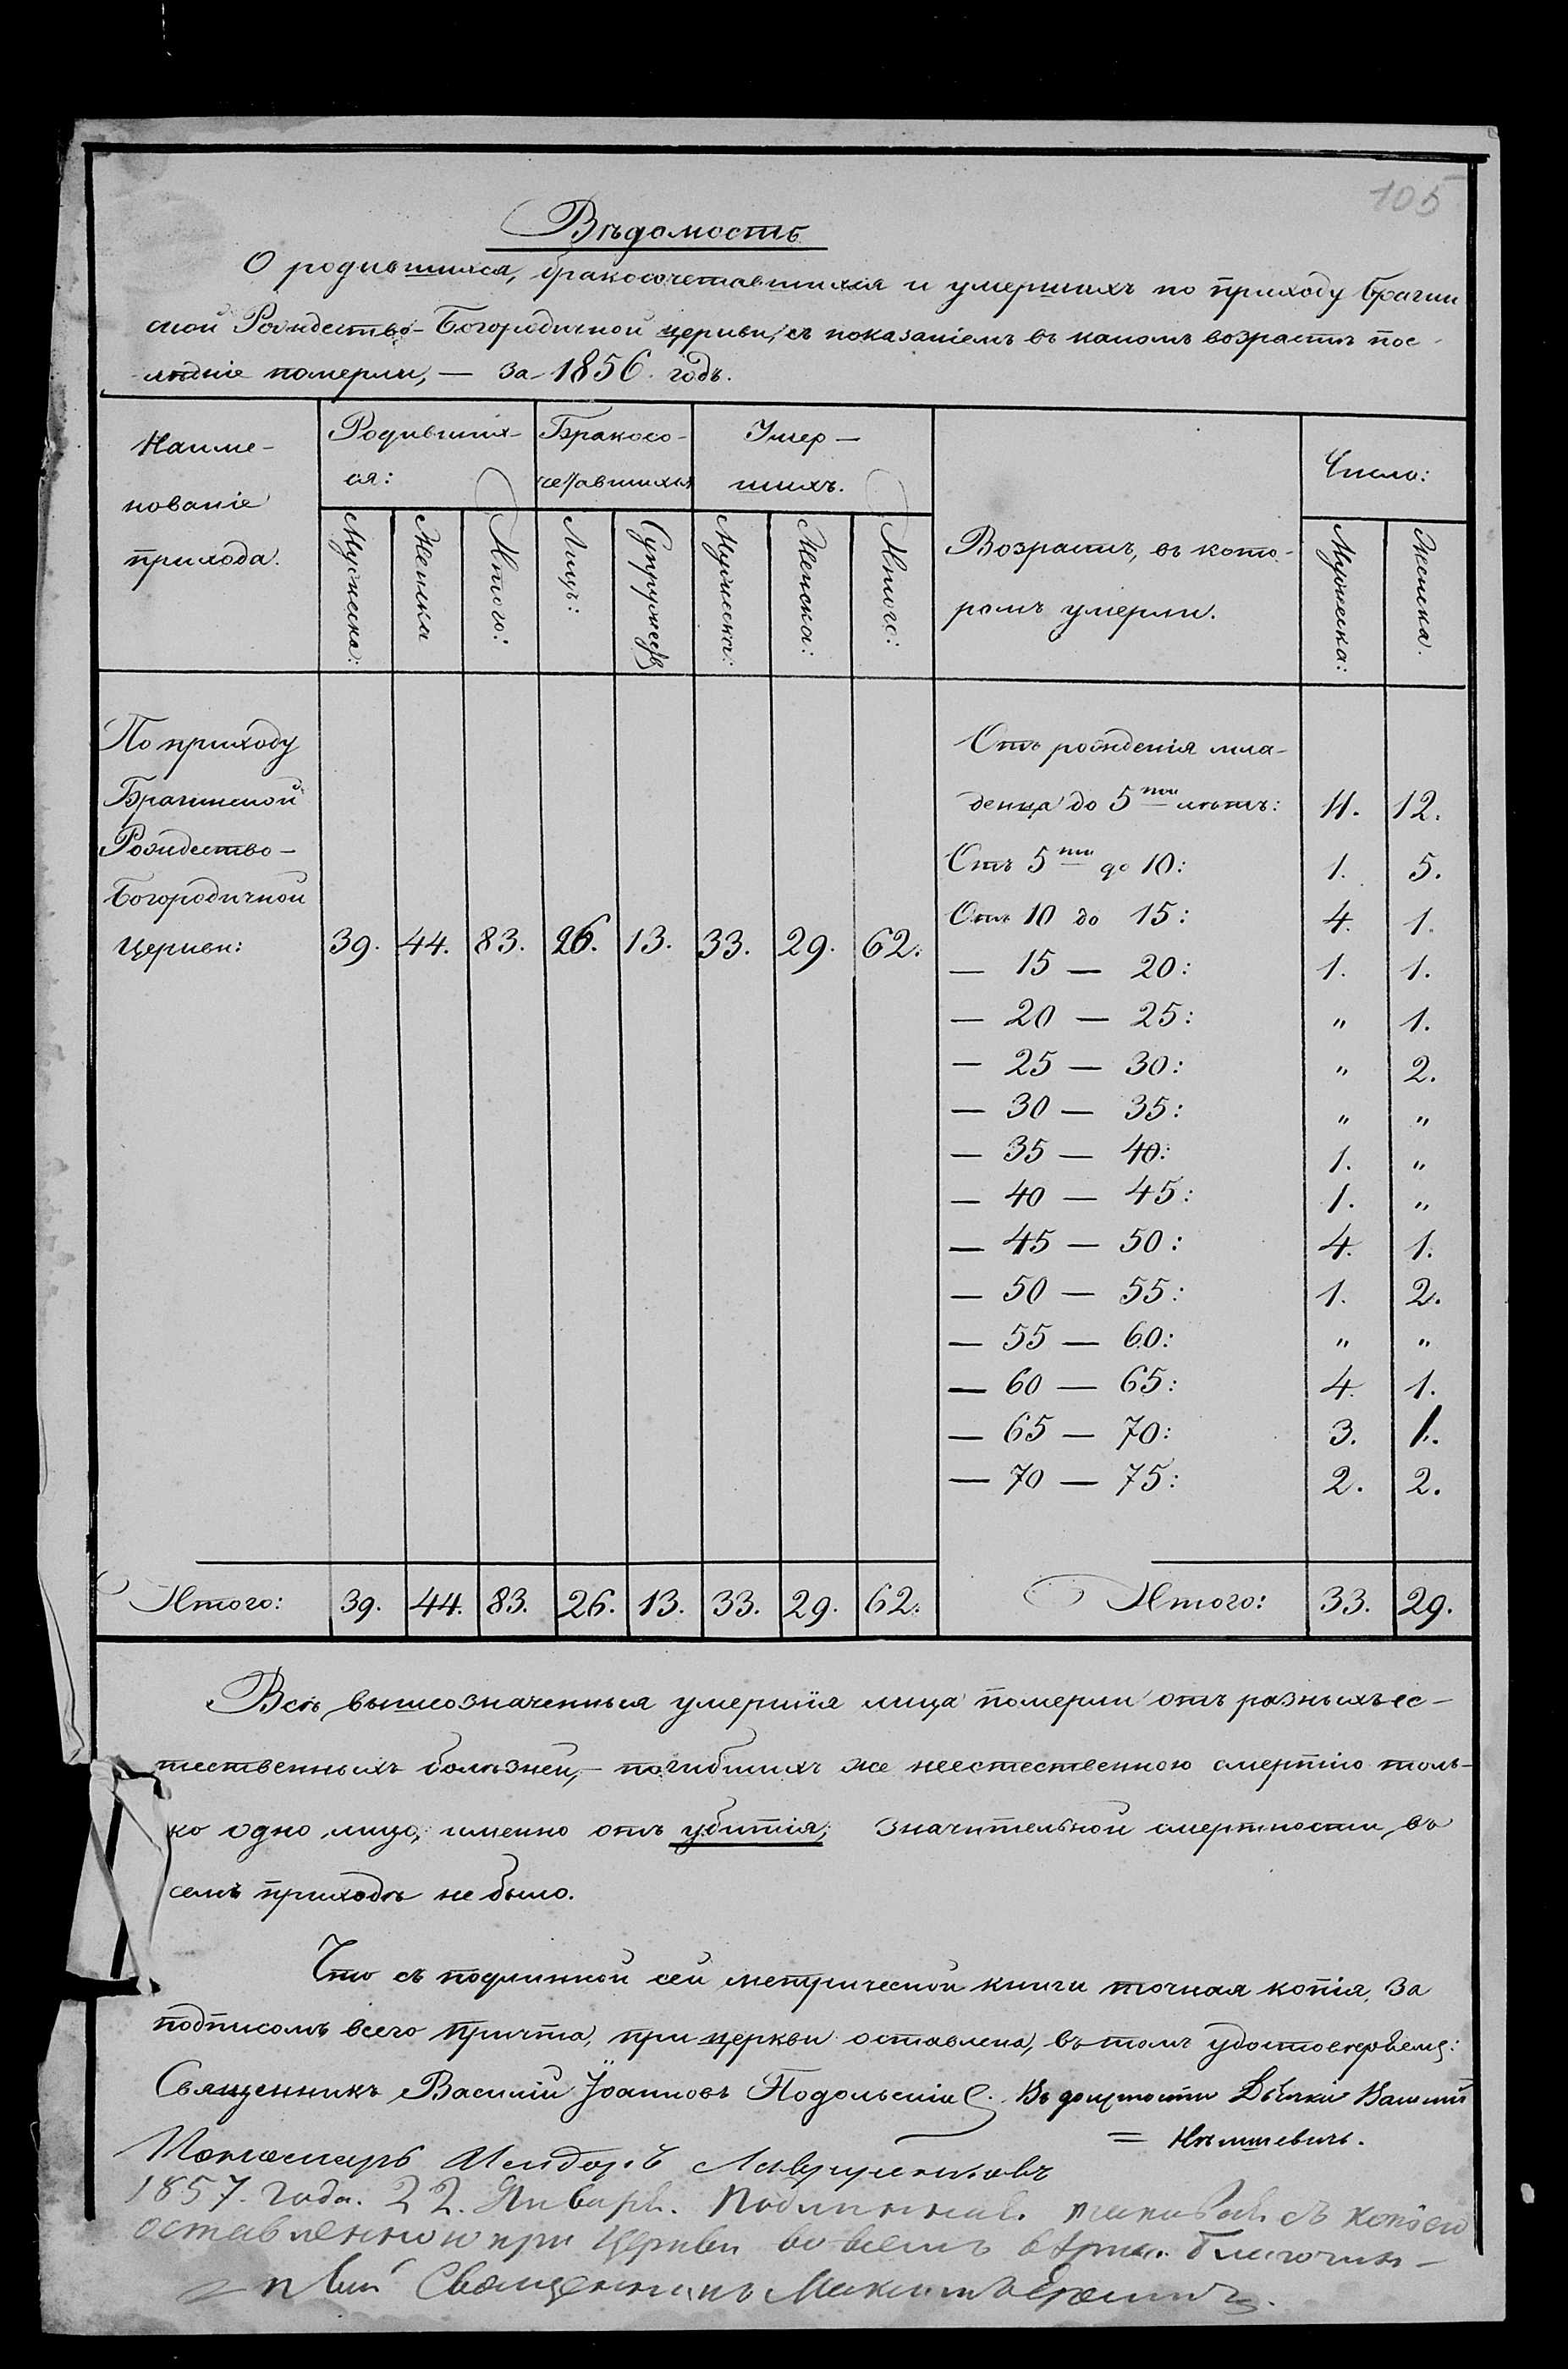 105
Вѣдомость
О родившихся, бракосочетавшихся и умершихъ по приходу Брагин
ской Рождество-Богородичной церкви, съ показаніемъ въ какомъ возрастѣ пос-
лѣдніе померли, — за 1856. годъ.
Наиме-
нованіе
прихода.
Родивших-
ся:
Бракосо-
четавшихся
Умер-
шихъ.
Возрастъ, въ кото-
ромъ умерли.
Число:
Мужеска: Женска Итого: Лицъ: Супружествъ Мужеска: Женска: Итого: Мужеска: Женска.
По приходу
Брагинской
Рождество-
Богородичной
Церкви: 39. 44. 83. 26. 13. 33. 29. 62.
Отъ рожденія мла-
денца до 5ти лѣтъ: 11. 12.
Отъ 5ти до 10: 1. 5.
Отъ 10 до 15: 4. 1.
— 15 — 20: 1. 1.
— 20 — 25: „ 1.
— 25 — 30: „ 2.
— 30 — 35: „ „
— 35 — 40: 1. „
— 40 — 45: 1. „
— 45 — 50: 4. 1.
— 50 — 55: 1. 2.
— 55 — 60: „ „
— 60 — 65: 4. 1.
— 65 — 70: 3. 1.
— 70 — 75: 2. 2.
Итого: 39. 44. 83. 26. 13. 33. 29. 62. Итого: 33. 29.
Всѣ вышеозначенныя умершія лица померли отъ разныхъ ес-
тественныхъ болѣзней, — погибшихъ же неестественною смертію толь-
ко одно лицо, именно отъ убитія; значительной смертности въ
семъ приходѣ не было.
Что съ подлинной сей метрической книги точная копія, за
подписомъ всего причта, при церкви оставлена, въ томъ удостовѣряемъ:
Священникъ Василій Іоанновъ Подольскій. Въ должности Дьячка
Пономарь Исидоръ
1857. года. 22. Января. Подлинная съ копіею
оставленною при Церкви во всемъ вѣрна. Благочин-
ный Священникъ